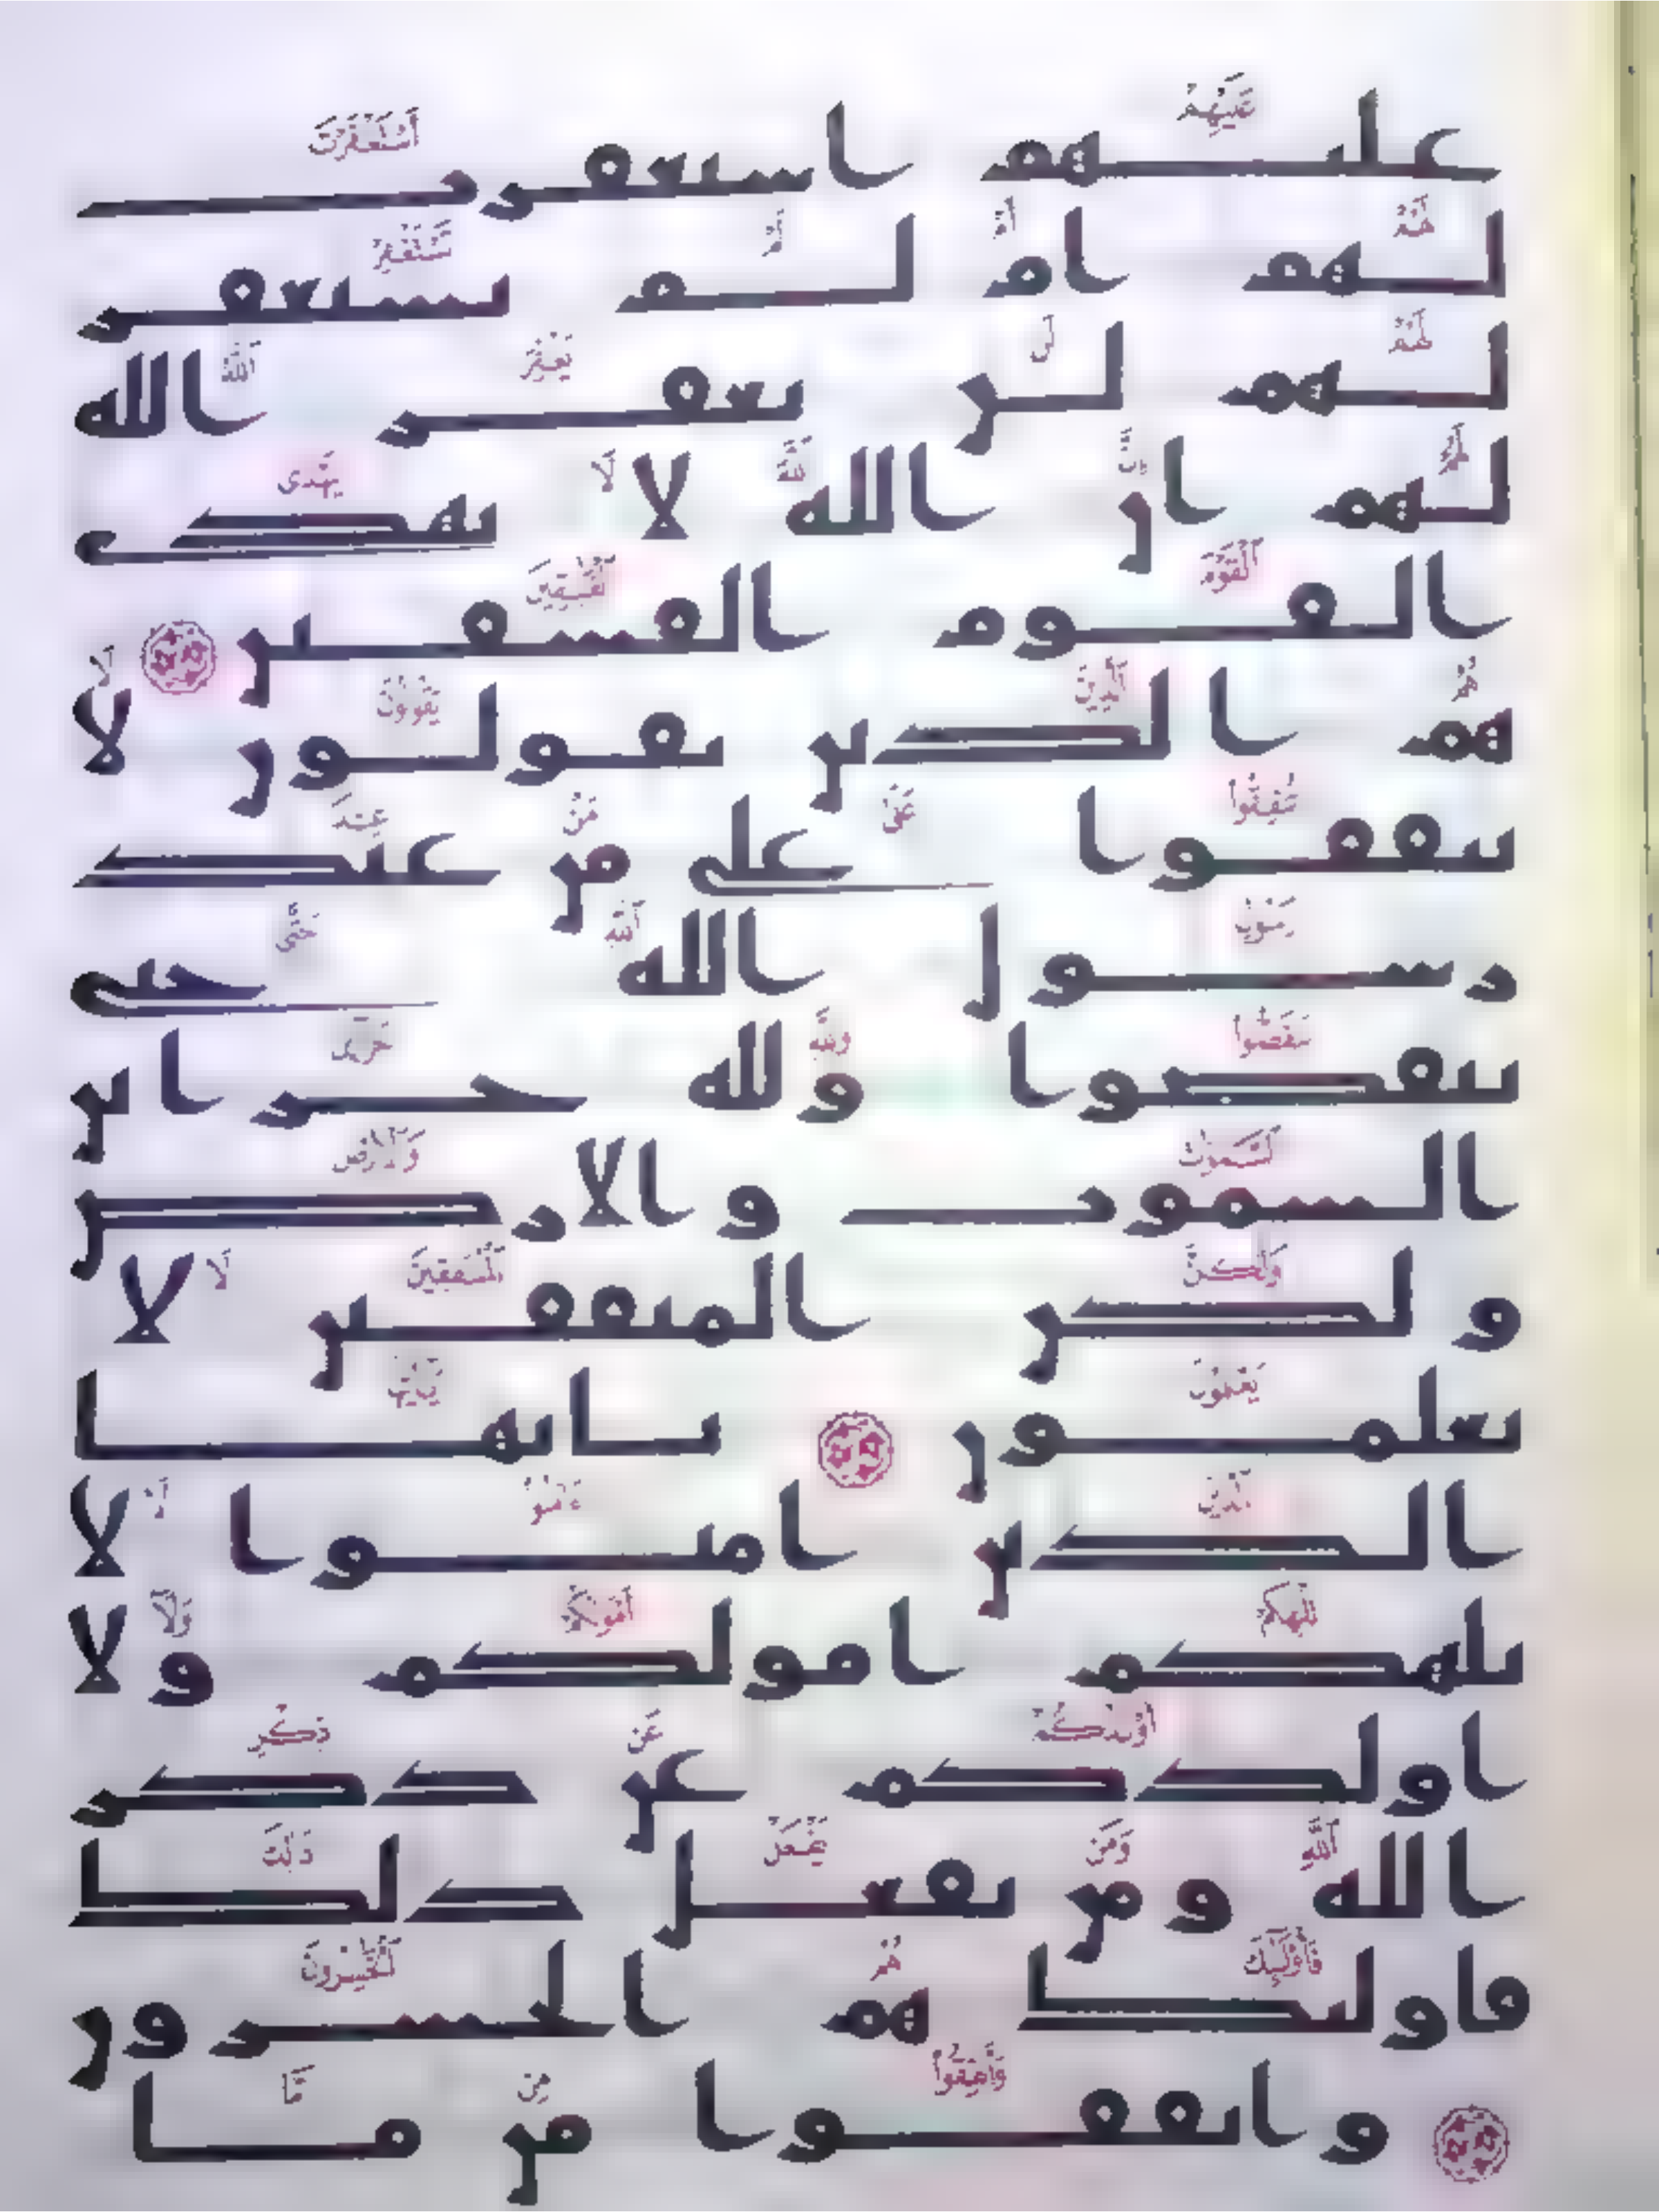 عليهم استغفرت
لهم ام لم تستغفر
لهم لن يغفر الله
لهم ان الله لا يهدى
القوم الفسقين
هم الذين يقولون لا
تنفقوا على من عند
رسول الله حتى
ينفضوا ولله خزاين
السموت والارض
ولكن المنفقين لا
يعلمون يايها
الذين امنوا لا
تلهكم امولكم ولا
اولدكم عن ذكر
الله ومن يفعل ذلك
فاوليك هم الخسرون
وانفقوا من ما